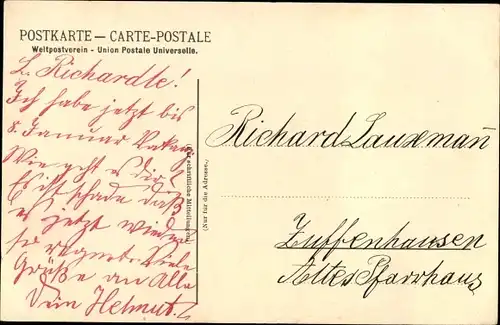 POSTKARTE — CARTE-POSTALE
Weltpostverein - Union Postale Universelle.
L. Richardle!
Ich habe jetzt bis
8. Januar Vakanz
Wie geht es dir?
Es ist schade daß
es jetzt wieder
so regnet. Viele
Grüße an Alle
Dein Helmut.
(Für schriftliche Mitteilungen.)
(Nur für die Adresse.)
Richard Lauxmann
Zuffenhausen
Altes Pfarrhaus